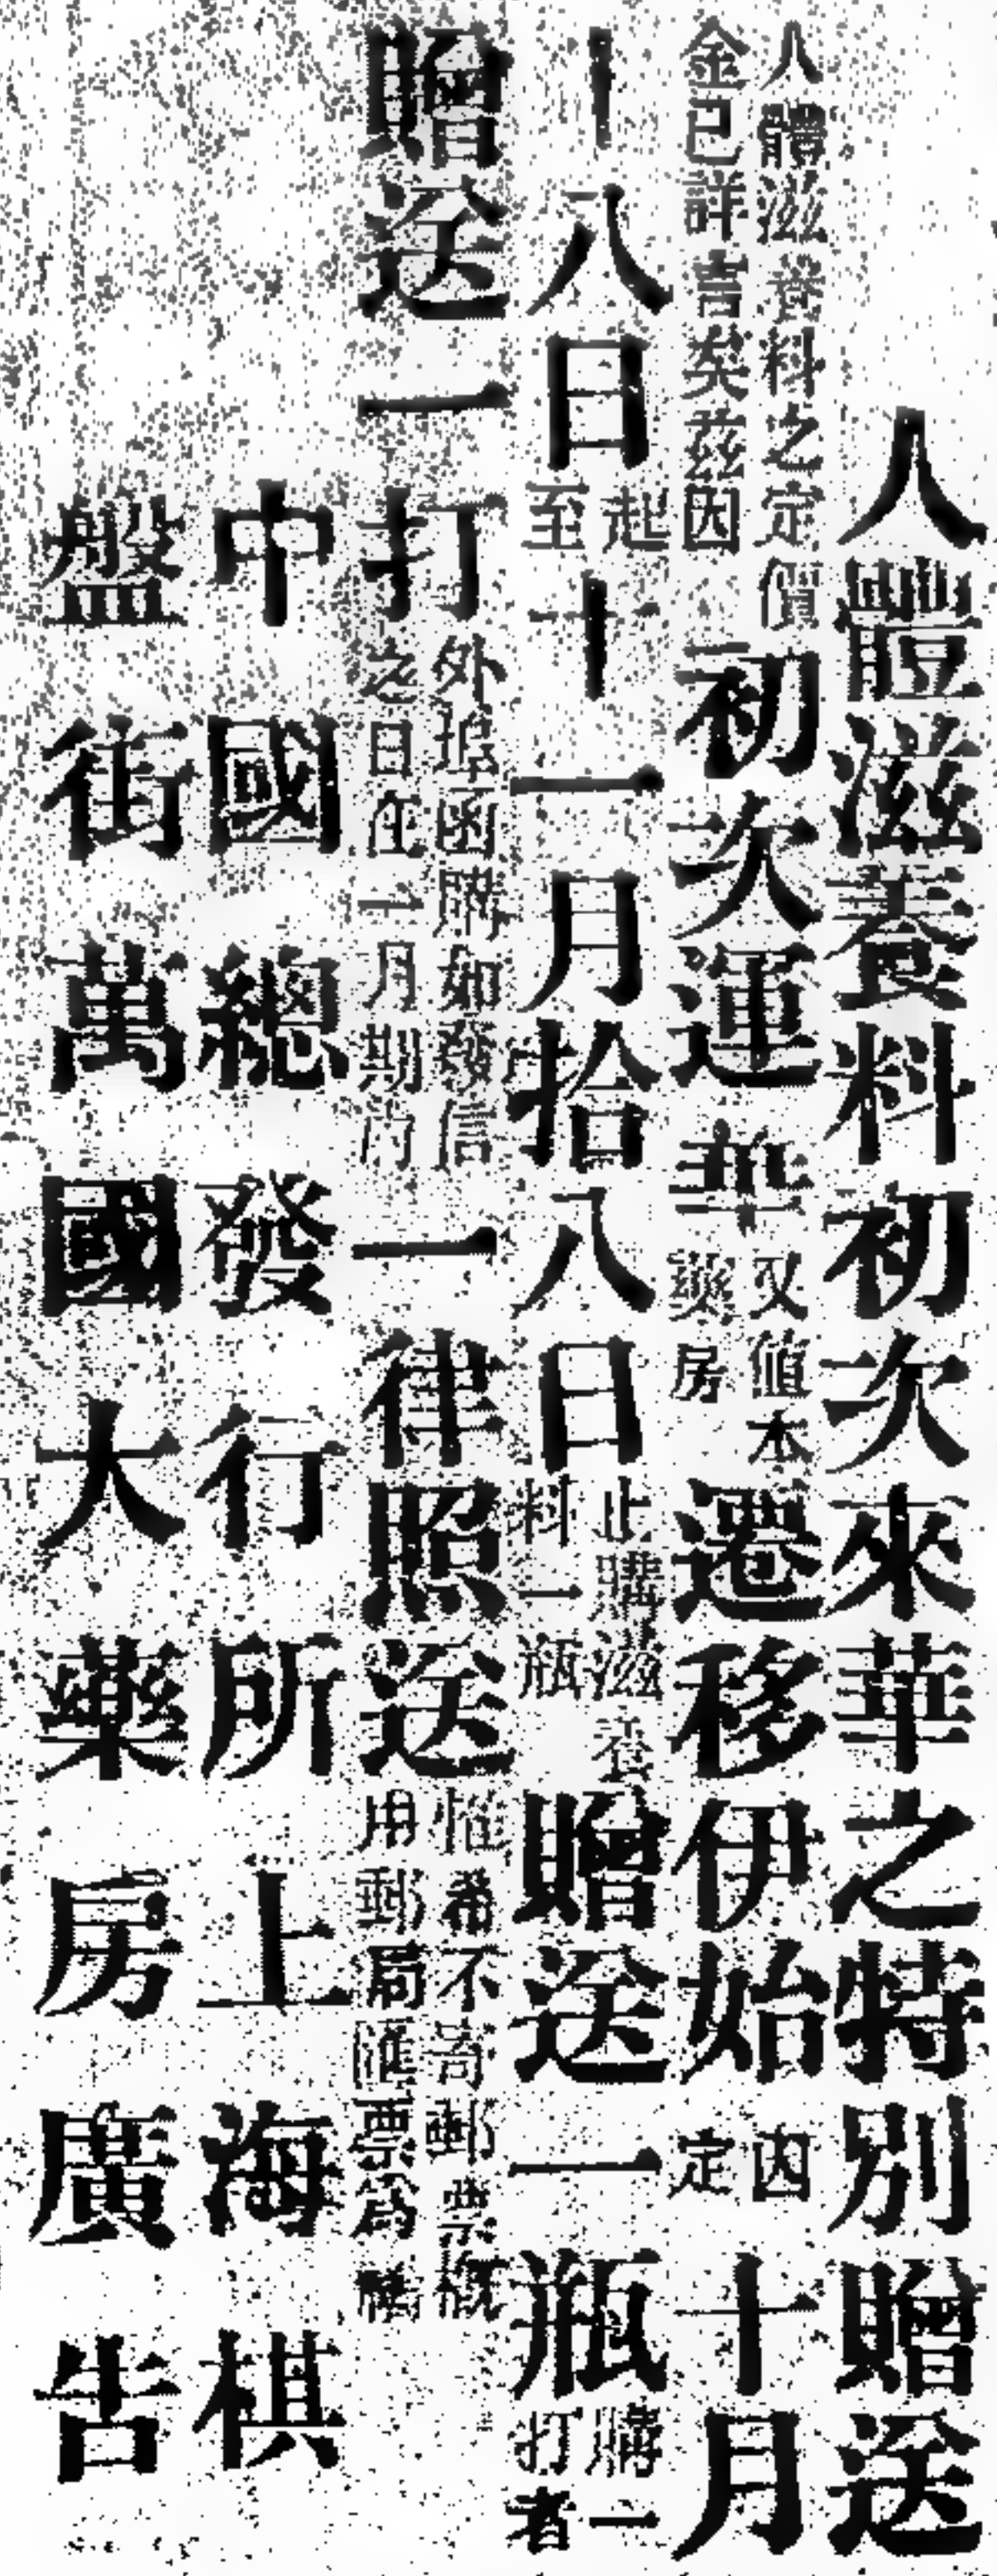 人體滋養料初次來華之特別贈送
人體滋養料之定價金已詳言矣茲因初次運華又值本藥房遷移伊始因定十月
十八日起至十一月拾八日止購滋養料一瓶贈送一瓶購一打者
贈送一打外埠函購如發信之日在一月期內一律照送惟希不寄郵票概用郵局匯票為禱
中國總發行所上海棋
盤街萬國大藥房廣告